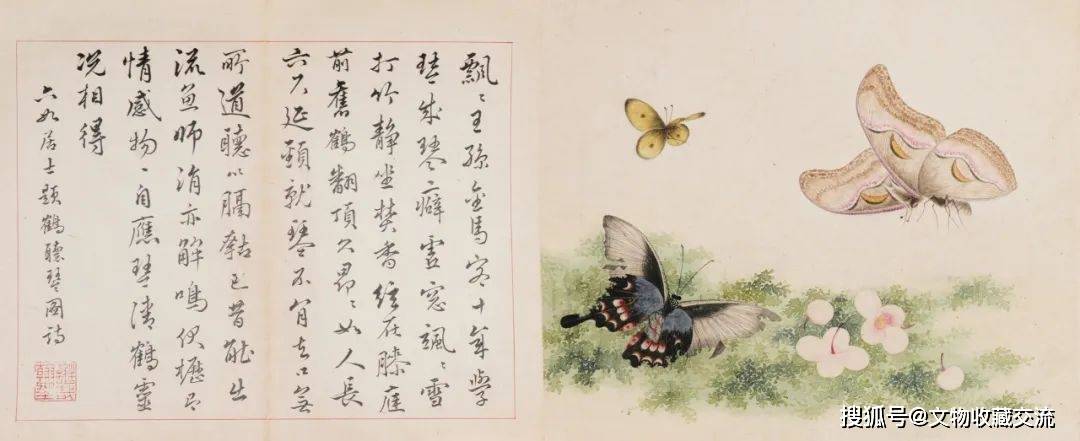 飄〻王孫金馬客十年學
琴成琴癖虚窓颯〻雪
打竹静坐焚香絃在膝座
前舊鶴翻頂久昂〻如人長
六尺延頸就琴不肯去口無
所道聽以膈瓠巴昔能出
流魚師涓亦解鳴伏櫪
情感物〻自應琴清鶴靈
况相得
六如居士題鶴聽琴圖詩
搜狐号@文物收藏交流